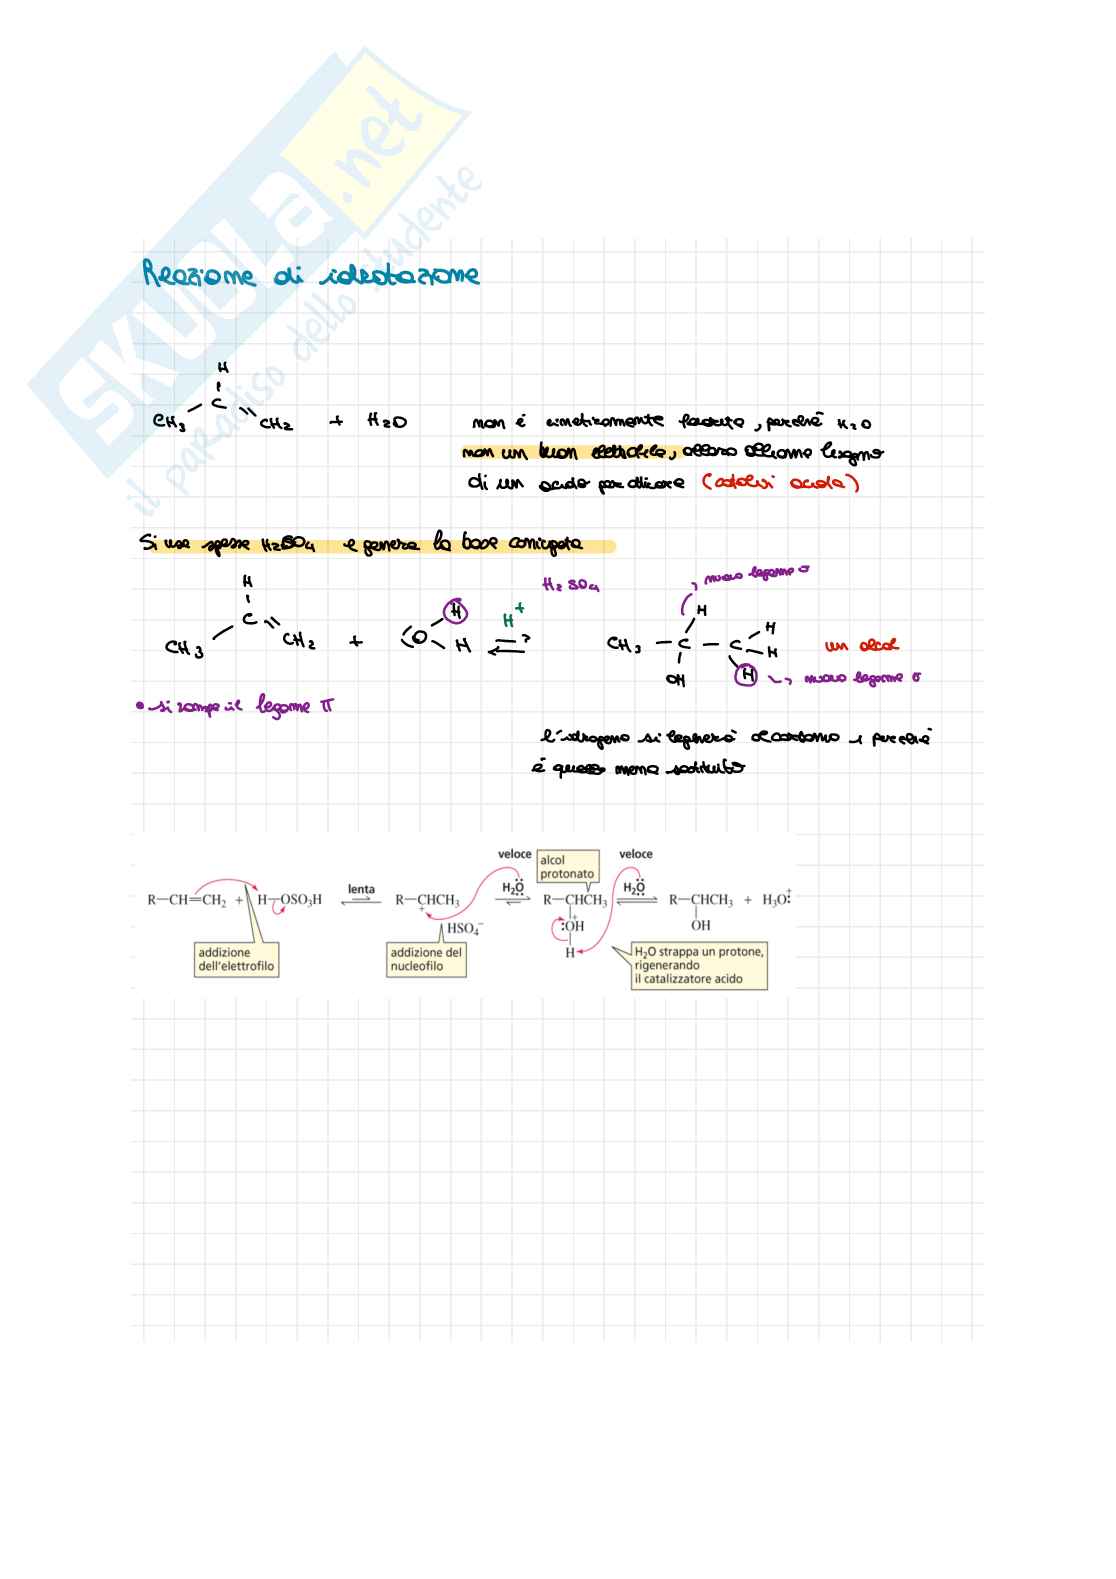 SKUOLA.net
il paradiso dello studente
Reazione di idratazione
H
C
CH3 CH2 + H2O
non è cineticamente favorito, perché H2O
non un buon elettrofilo, allora abbiamo bisogno
di un acido per attivare (catalisi acida)
Si usa spesso H2SO4 e genera la base coniugata
H
C
CH3 CH2 + O H H
H2SO4
H+
nuovo legame σ
H
CH3 - C - C H H
OH H
nuovo legame σ
un alcol
• si rompe il legame π
l'idrogeno si legherà al carbonio 1 perché
è quello meno sostituito
veloce alcol protonato veloce
R-CH=CH2 + H-OSO3H lenta R-CHCH3 + HSO4- H2Ö R-CHCH3 H2Ö R-CHCH3 + H3O:+
:OH+ OH
H
addizione
dell'elettrofilo
addizione del
nucleofilo
H2O strappa un protone,
rigenerando
il catalizzatore acido